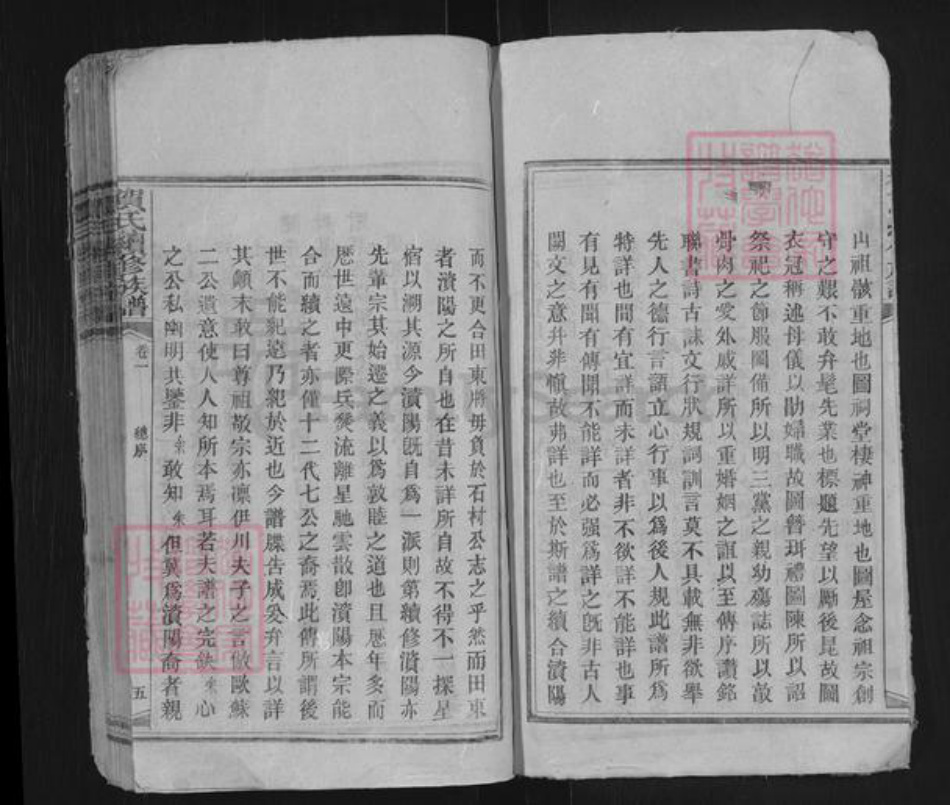 山祖骸重地也圖祠堂棲神重地也圖屋念祖宗創
守之艱不敢弁髦先業也標題先望以勵後昆故圖
衣冠稱述母儀以勖婦職故圖簪珥禮圖陳所以詔
祭祀之節服圖備所以明三黨之親幼殤誌所以敦
骨肉之愛外戚詳所以重婚姻之誼以至傳序讚銘
聯書詩古誄文行狀規詞訓言莫不具載無非欲舉
先人之德行言論立心行事以為後人規此譜所為
特詳也間有宜詳而未詳者非不欲詳不能詳也事
有見有聞有傳聞不能詳而必强為詳之既非古人
闕文之意幷非愼故弗詳也至於斯譜之續合濱陽
而不更合田東將毋負於石村公志之乎然而田東
者濱陽之所自也在昔未詳所自故不得不一探星
宿以溯其源今濱陽既自為一派則第續修濱陽亦
先輩宗其始遷之義以為敦睦之道也且歷年多而
歷世遠中更際兵燹流離星馳雲散卽濱陽本宗能
合而續之者亦僅十二代七公之裔焉此傳所謂後
世不能紀遠乃紀於近也今譜牒告成爰弁言以詳
其顛末敢曰尊祖敬宗亦凛伊川夫子之言倣歐蘇
二公遺意使人人知所本焉耳若夫譜之完缺朱心
之公私幽明共鑒非朱敢知朱但冀為濱陽裔者親
賀氏續修族譜
卷一
總序
五